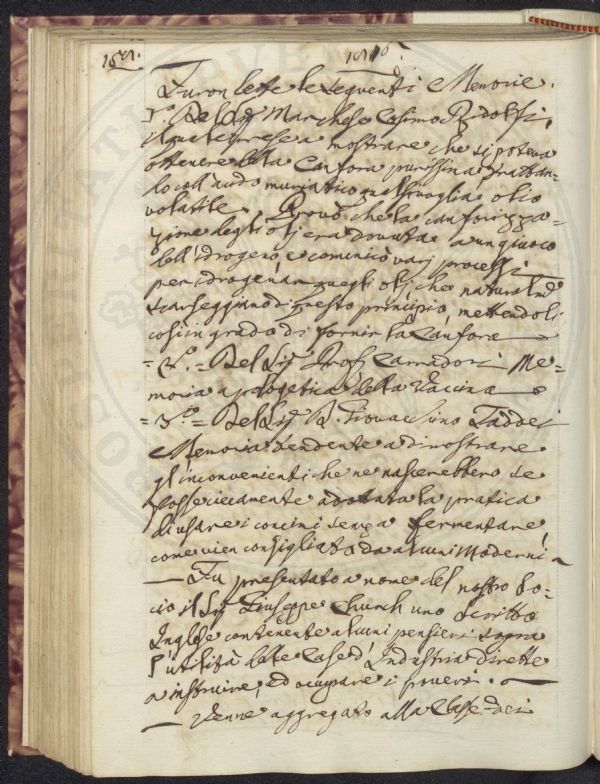 1816.
Furon lette le seguenti Memorie.
1.a Del Sig. Marchese Cosimo Ridolfi,
il quale prese a mostrare che si poteva
ottenere della Canfora purissima, trattan-
do coll'acido muriatico qualsivoglia olio
volatile. Provò che la canforizza=
zione degli olj era dovuta a un giuoco
dell'idrogeno, e comunicò varj processi
per idrogenar quegli olj che natural.te
scarseggiano di questo principio, mettendoli
così in grado di fornir la Canfora
= 2.a = Del Sig. Prof. Carradori Me=
moria apologetica della Vaccina
= 3.a = Del Sig. D. Giovacchino Taddei
Memoria tendente a dimostrare
gl'inconvenienti che ne nascerebbero se
fosse ciecamente adottata la pratica
di usare i concini senza fermentare,
come vien consigliato da alcuni Moderni
— Fu presentato a nome del nostro So-
cio il Sig. Giuseppe Church uno scritto
Inglese contenente alcuni pensieri sopra
l'utilità delle Case d'Industria dirette
a instruire, ed occupare i poveri. —
— Venne aggregato alla Classe dei